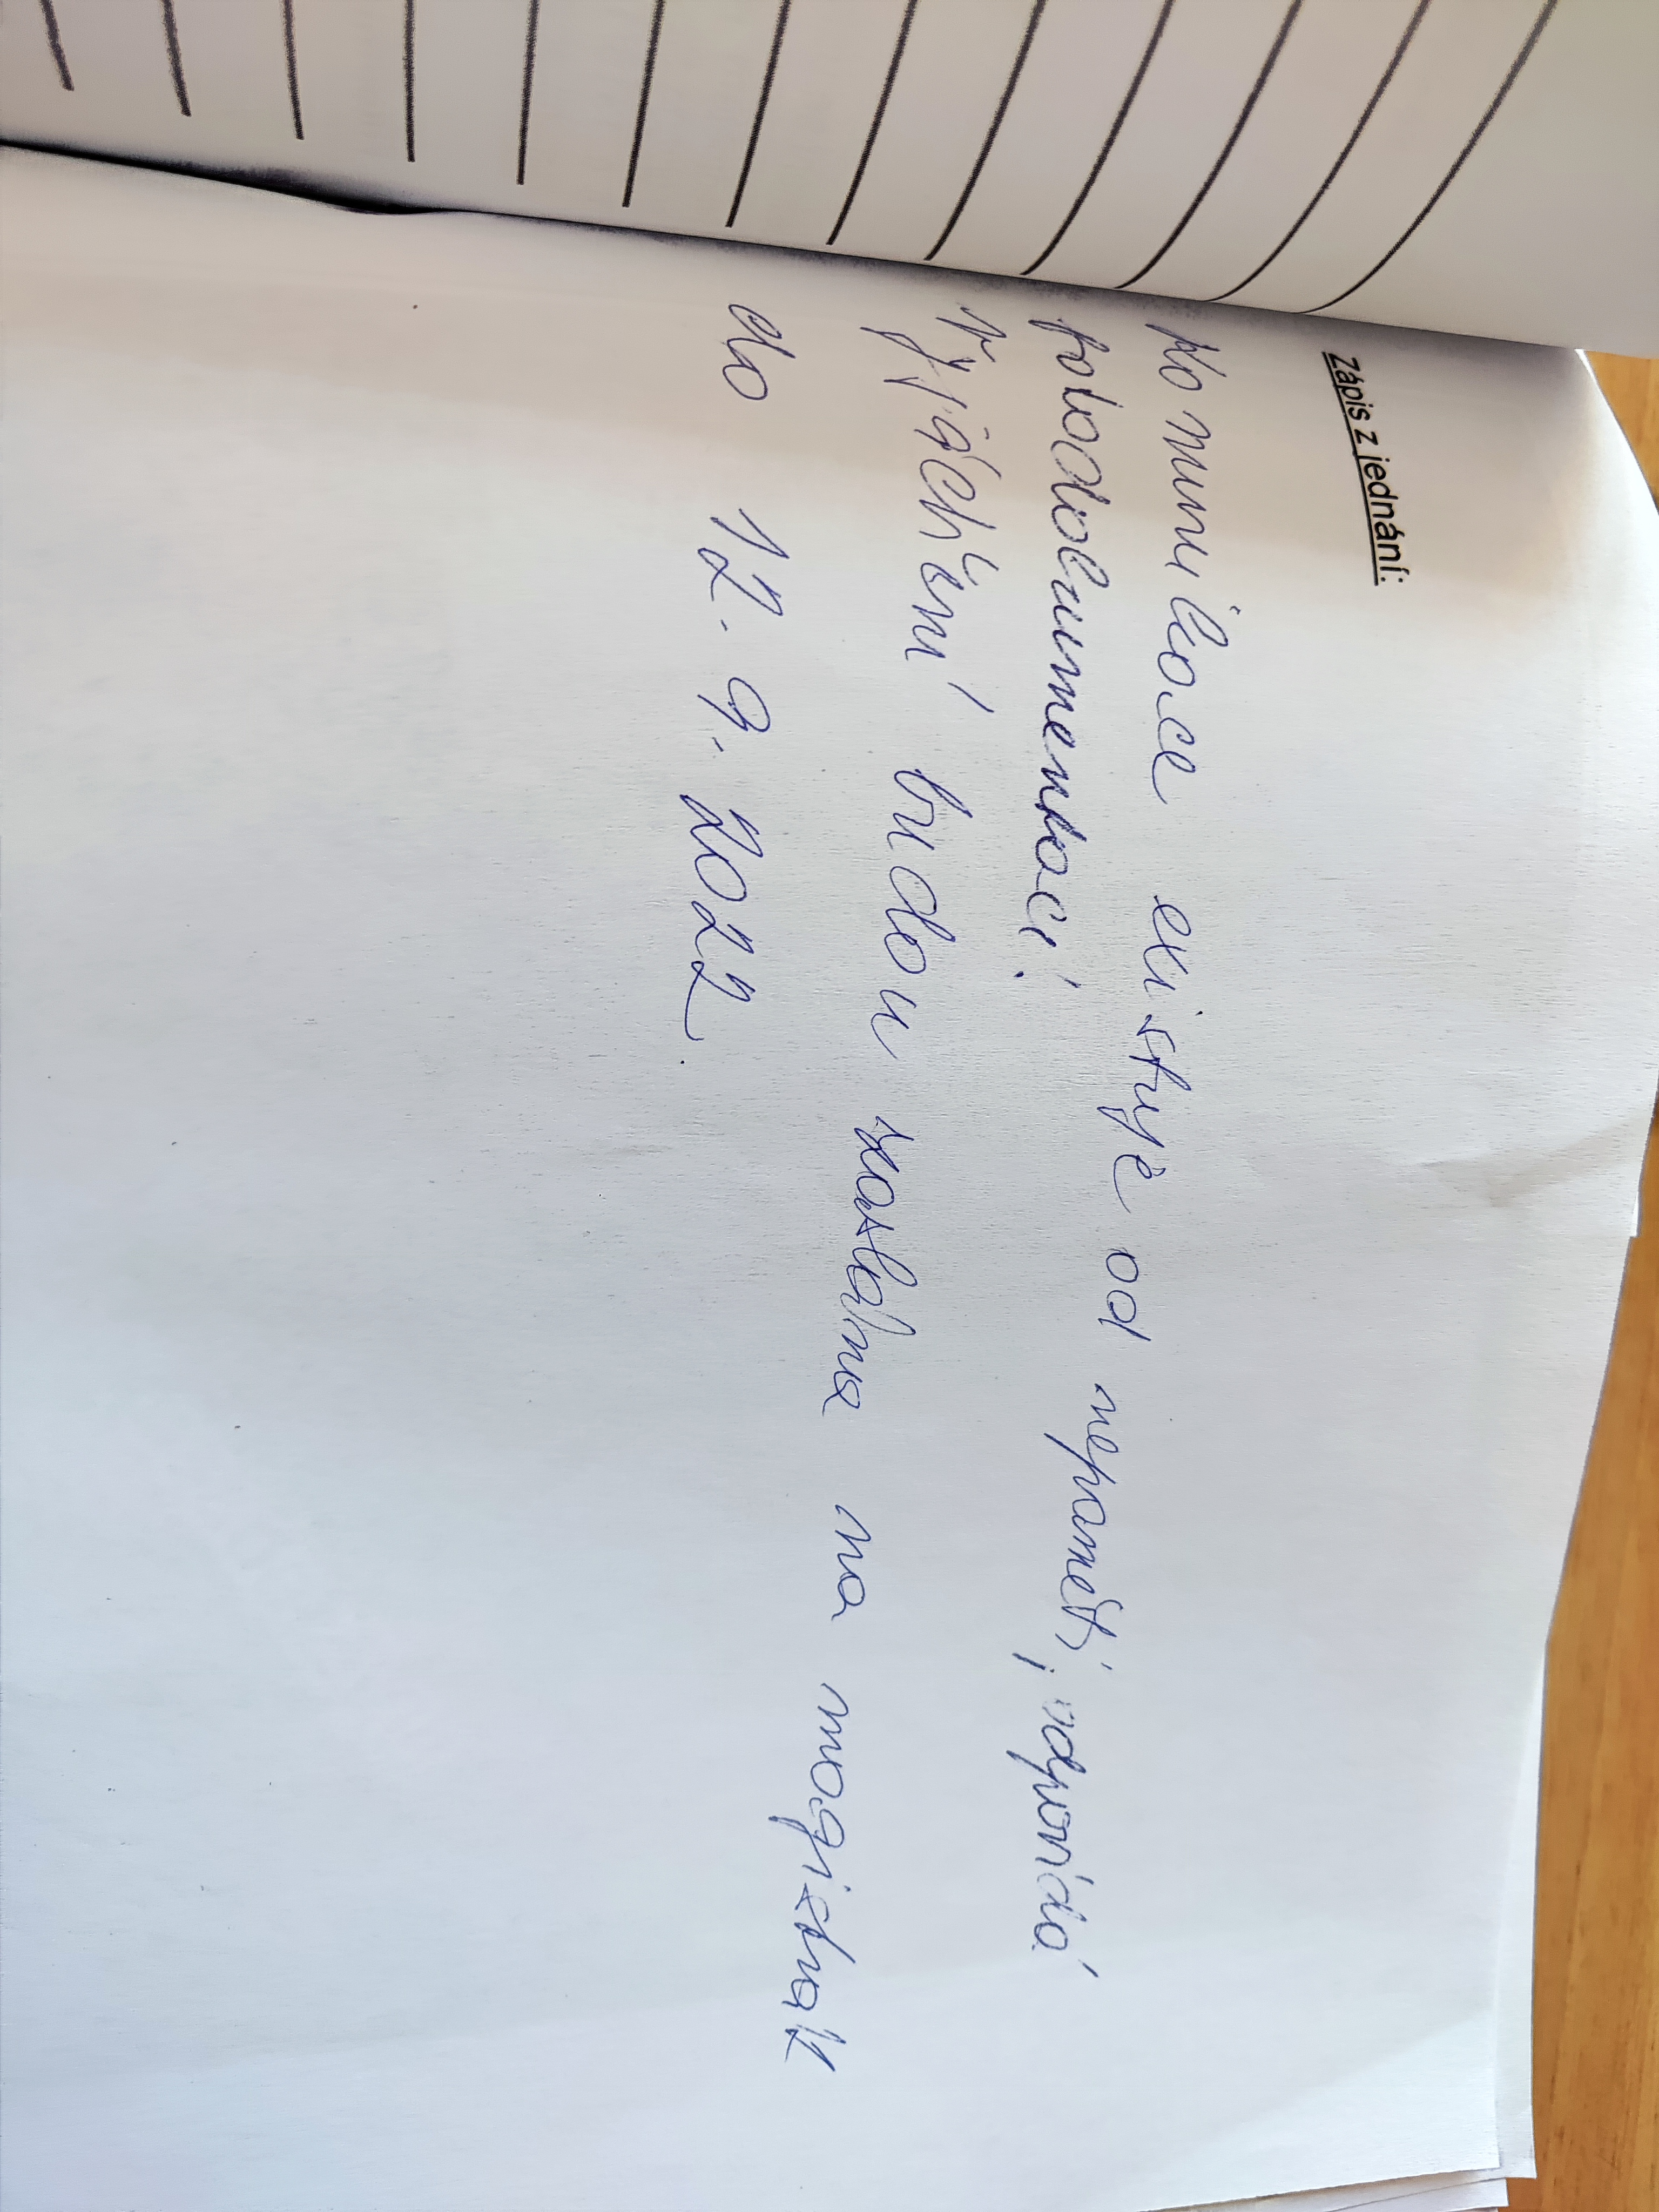 Zápis z jednání:
Komunikace existuje od nepaměti, odpovídá
fotodokumentaci.
Vyjádření budou zaslána na magistrát
do 12. 9. 2022.